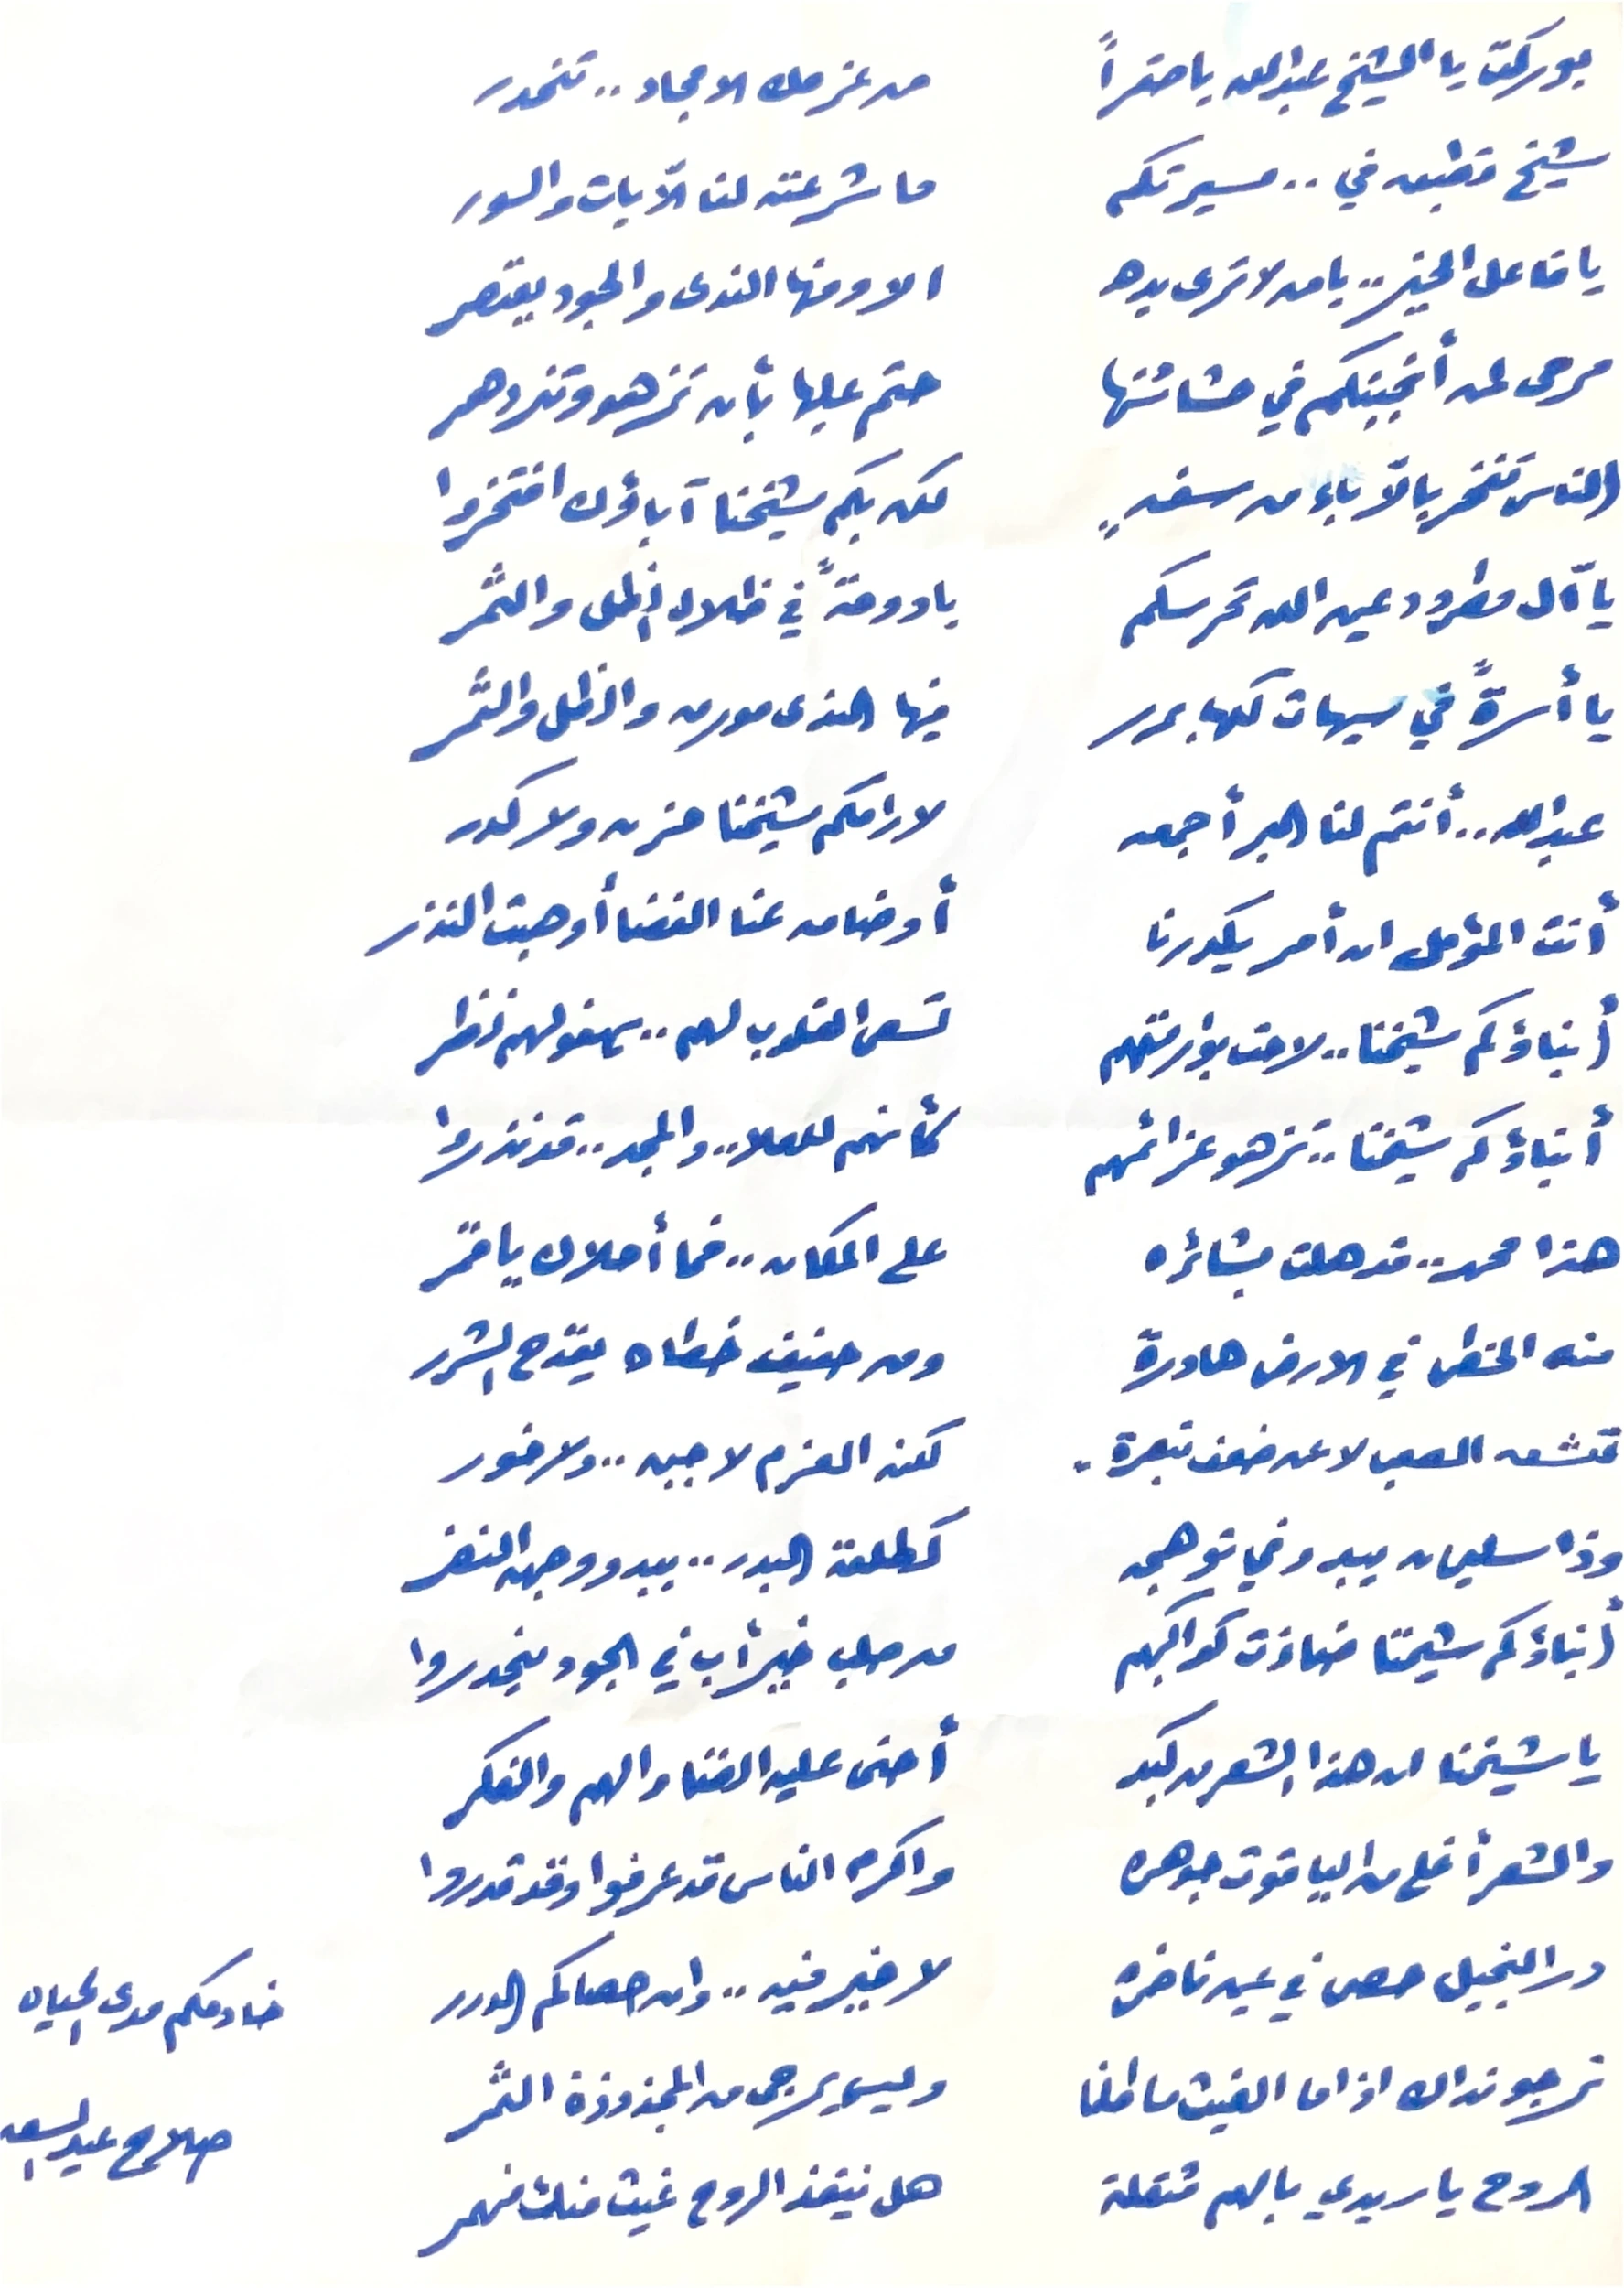 بوركت يا الشيخ عبدالله يا صقراً من عزمك الامجاد .. تنحدر
شيخ تطبق في .. مسيرتكم ما شرعته لنا الآيات والسور
يا فاعل الخير .. يا من لا ترى يده الا وفيها الندى والجود يعتصر
مرحى لمن أنجبتكم في حشاشتها حتم عليها بأن تزهو وتزدهر
الناس تفخر بالآباء من سفهٍ لكن بكم شيخنا آباؤك افتخروا
يا آل مطرود عين الله تحرسكم يا دوحةً في ظلال الظل والثمر
يا أسرةً في سيهات كلها برر فيها الندى مورق والظل والثمر
عبدالله .. أنتم لنا البر أجمعه لا رامكم شيخنا حزن ولا كدر
أنت المؤمل ان أمر يكدرنا أو ضامه عنا القضا أو هبت النذر
أبناؤكم شيخنا .. لاحت بوارقهم تسعى القلوب لهم .. يهفو لهم نظر
أبناؤكم شيخنا .. تزهو عزائمهم كأنهم للعلا .. والمجد .. قد نذروا
هذا محمد .. قد هلت بشائره على المكان .. فما أحلاك يا قمر
منه الخطى في الارض هادرة ومن حفيف خطاه يقدح الشرر
تمشي الصعب لا عن ضعف نبرة لكنه العزم لا جبن .. ولا خور
وذا سليمان يبدو في توهجه كطلعة البدر .. يبدو وجهه النضر
أبناؤكم شيخنا ضاءت كواكبهم من صلب خير أب في الجود ينحدروا
يا شيخنا ان هذا الشعر من كبد أحنى عليه الضنا والهم والفكر
والشعر أغلى من الياقوت جوهره واكرم الناس قد عرفوا وقد قدروا
در البخيل حصى في عين ناظره لا خير فيه .. وان حصاكم الدرر
نرجو نداك اذا ما الغيث ماطلنا وليس يرجى من المجذوذة الثمر
الروح يا سيدي بالهم مثقلة هل ينقذ الروح غيث منك منهمر
خادمكم مدى الحياه
صلاح عبد السعد